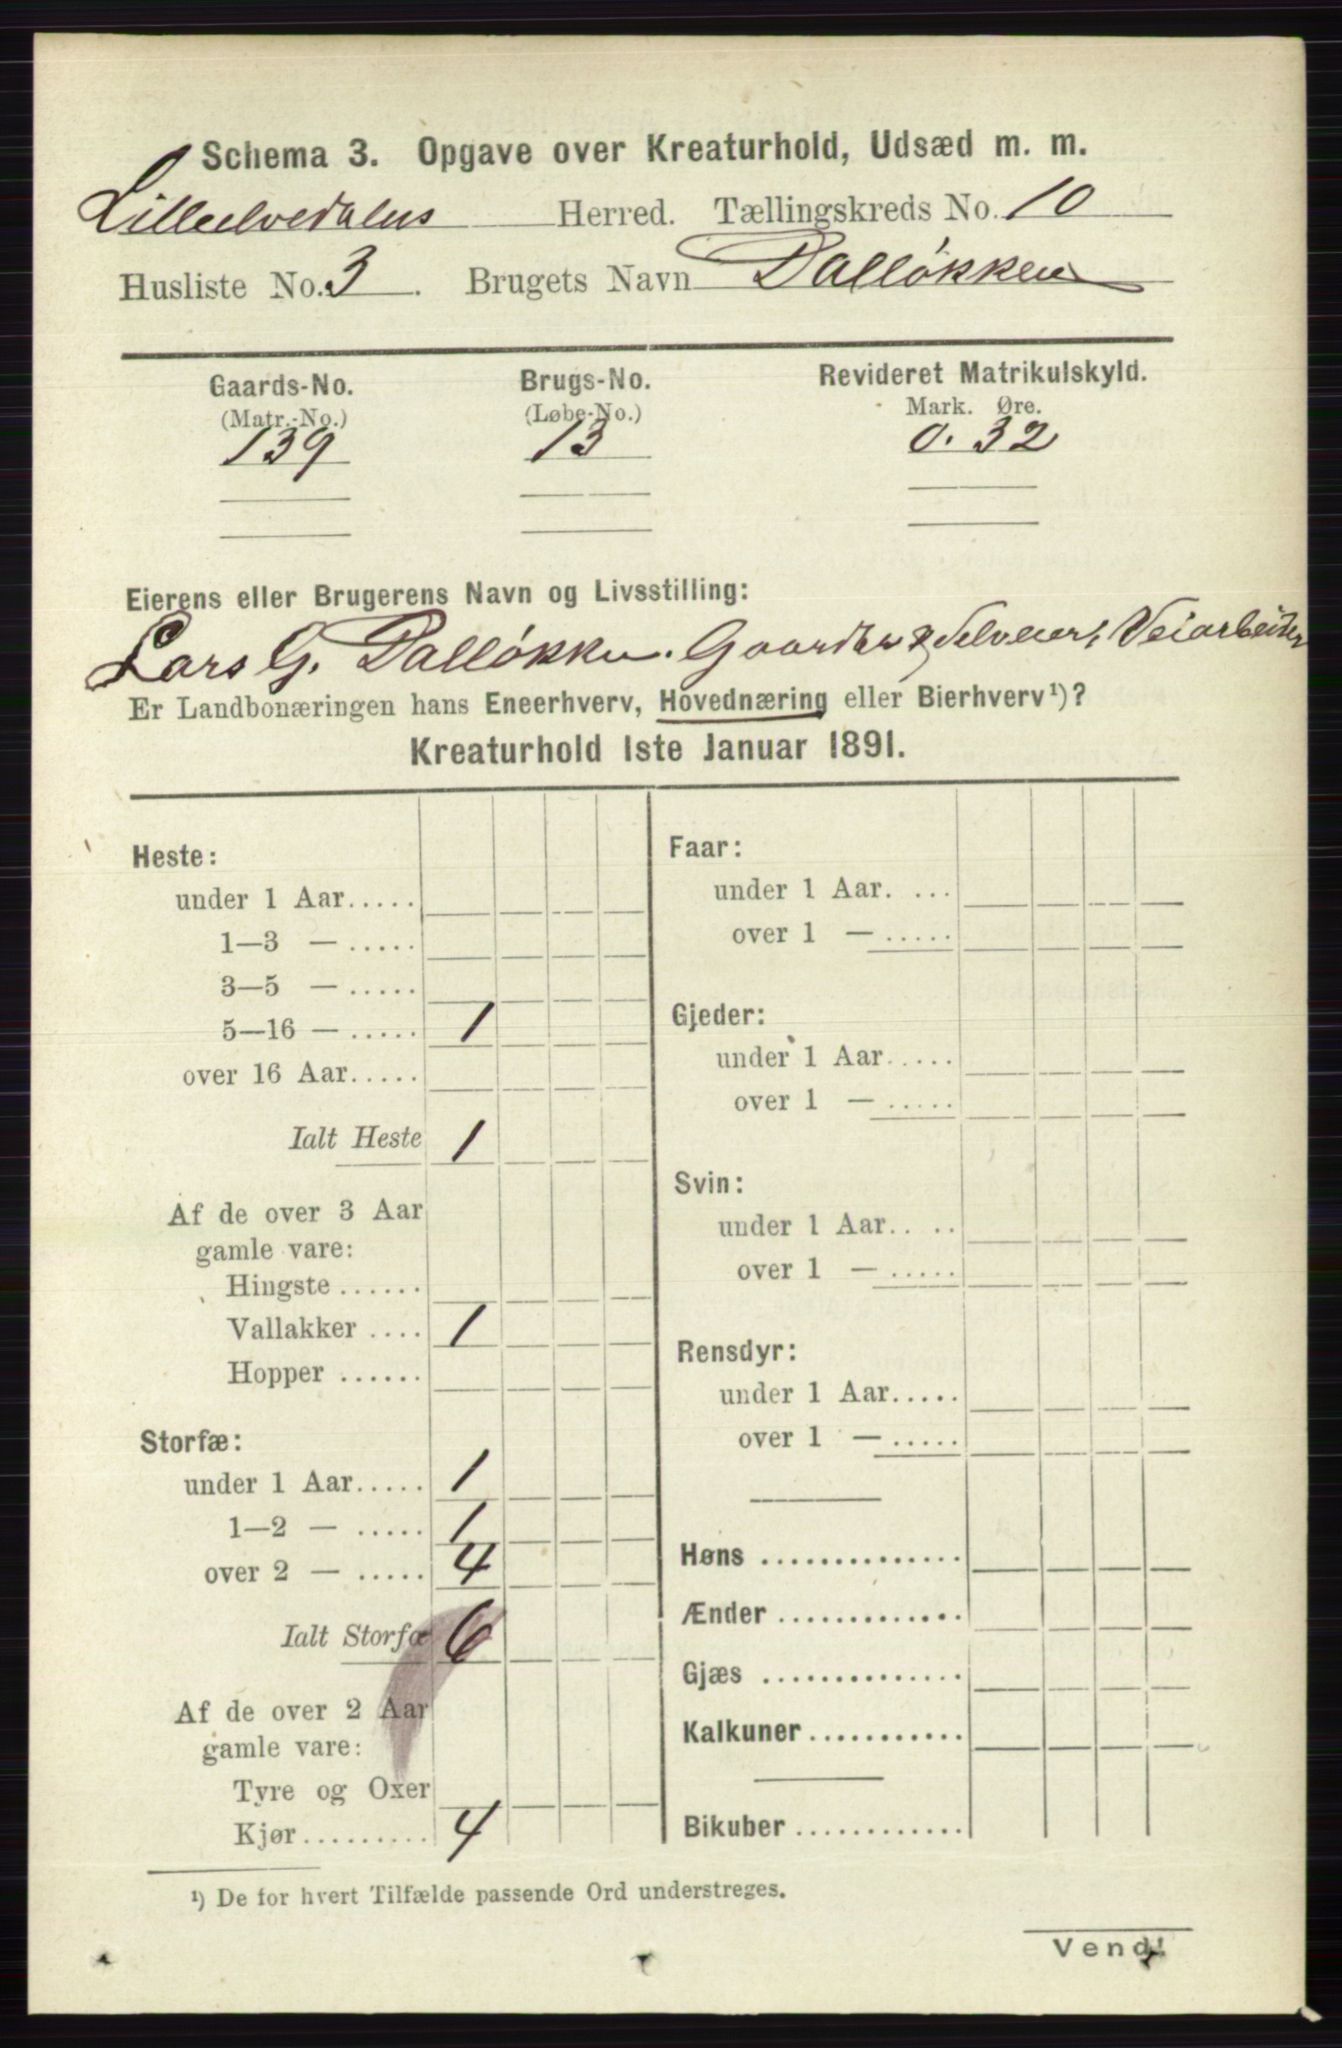 Schema 3. Opgave over Kreaturhold, Udsæd m. m.
Lilleelvedalens Herred. Tællingskreds No. 10
Husliste No. 3. Brugets Navn Dalløkken
Gaards-No. Brugs-No. Revideret Matrikulskyld.
(Matr.-No.) (Løbe-No.) Mark. Øre.
139 13 0. 32
Eierens eller Brugerens Navn og Livsstilling:
Lars G. Dalløkken. Gaardbr & Selveier, Veiarbeider
Er Landbonæringen hans Eneerhverv, Hovednæring eller Bierhverv¹)?
Kreaturhold 1ste Januar 1891.
Heste:
under 1 Aar.....
1—3 — .....
3—5 — .....
5—16 — ..... 1
over 16 Aar.....
Ialt Heste 1
Af de over 3 Aar
gamle vare:
Hingste ......
Vallakker .... 1
Hopper ......
Storfæ:
under 1 Aar..... 1
1—2 — ..... 1
over 2 — ..... 4
Ialt Storfæ 6
Af de over 2 Aar
gamle vare:
Tyre og Oxer
Kjør......... 4
Faar:
under 1 Aar. ...
over 1 — .....
Gjeder:
under 1 Aar.....
over 1 — .....
Svin:
under 1 Aar.. ..
over 1 — .....
Rensdyr:
under 1 Aar.....
over 1 — .....
Høns ..............
Ænder .............
Gjæs ..............
Kalkuner ...........
Bikuber ............
¹) De for hvert Tilfælde passende Ord understreges.
Vend!